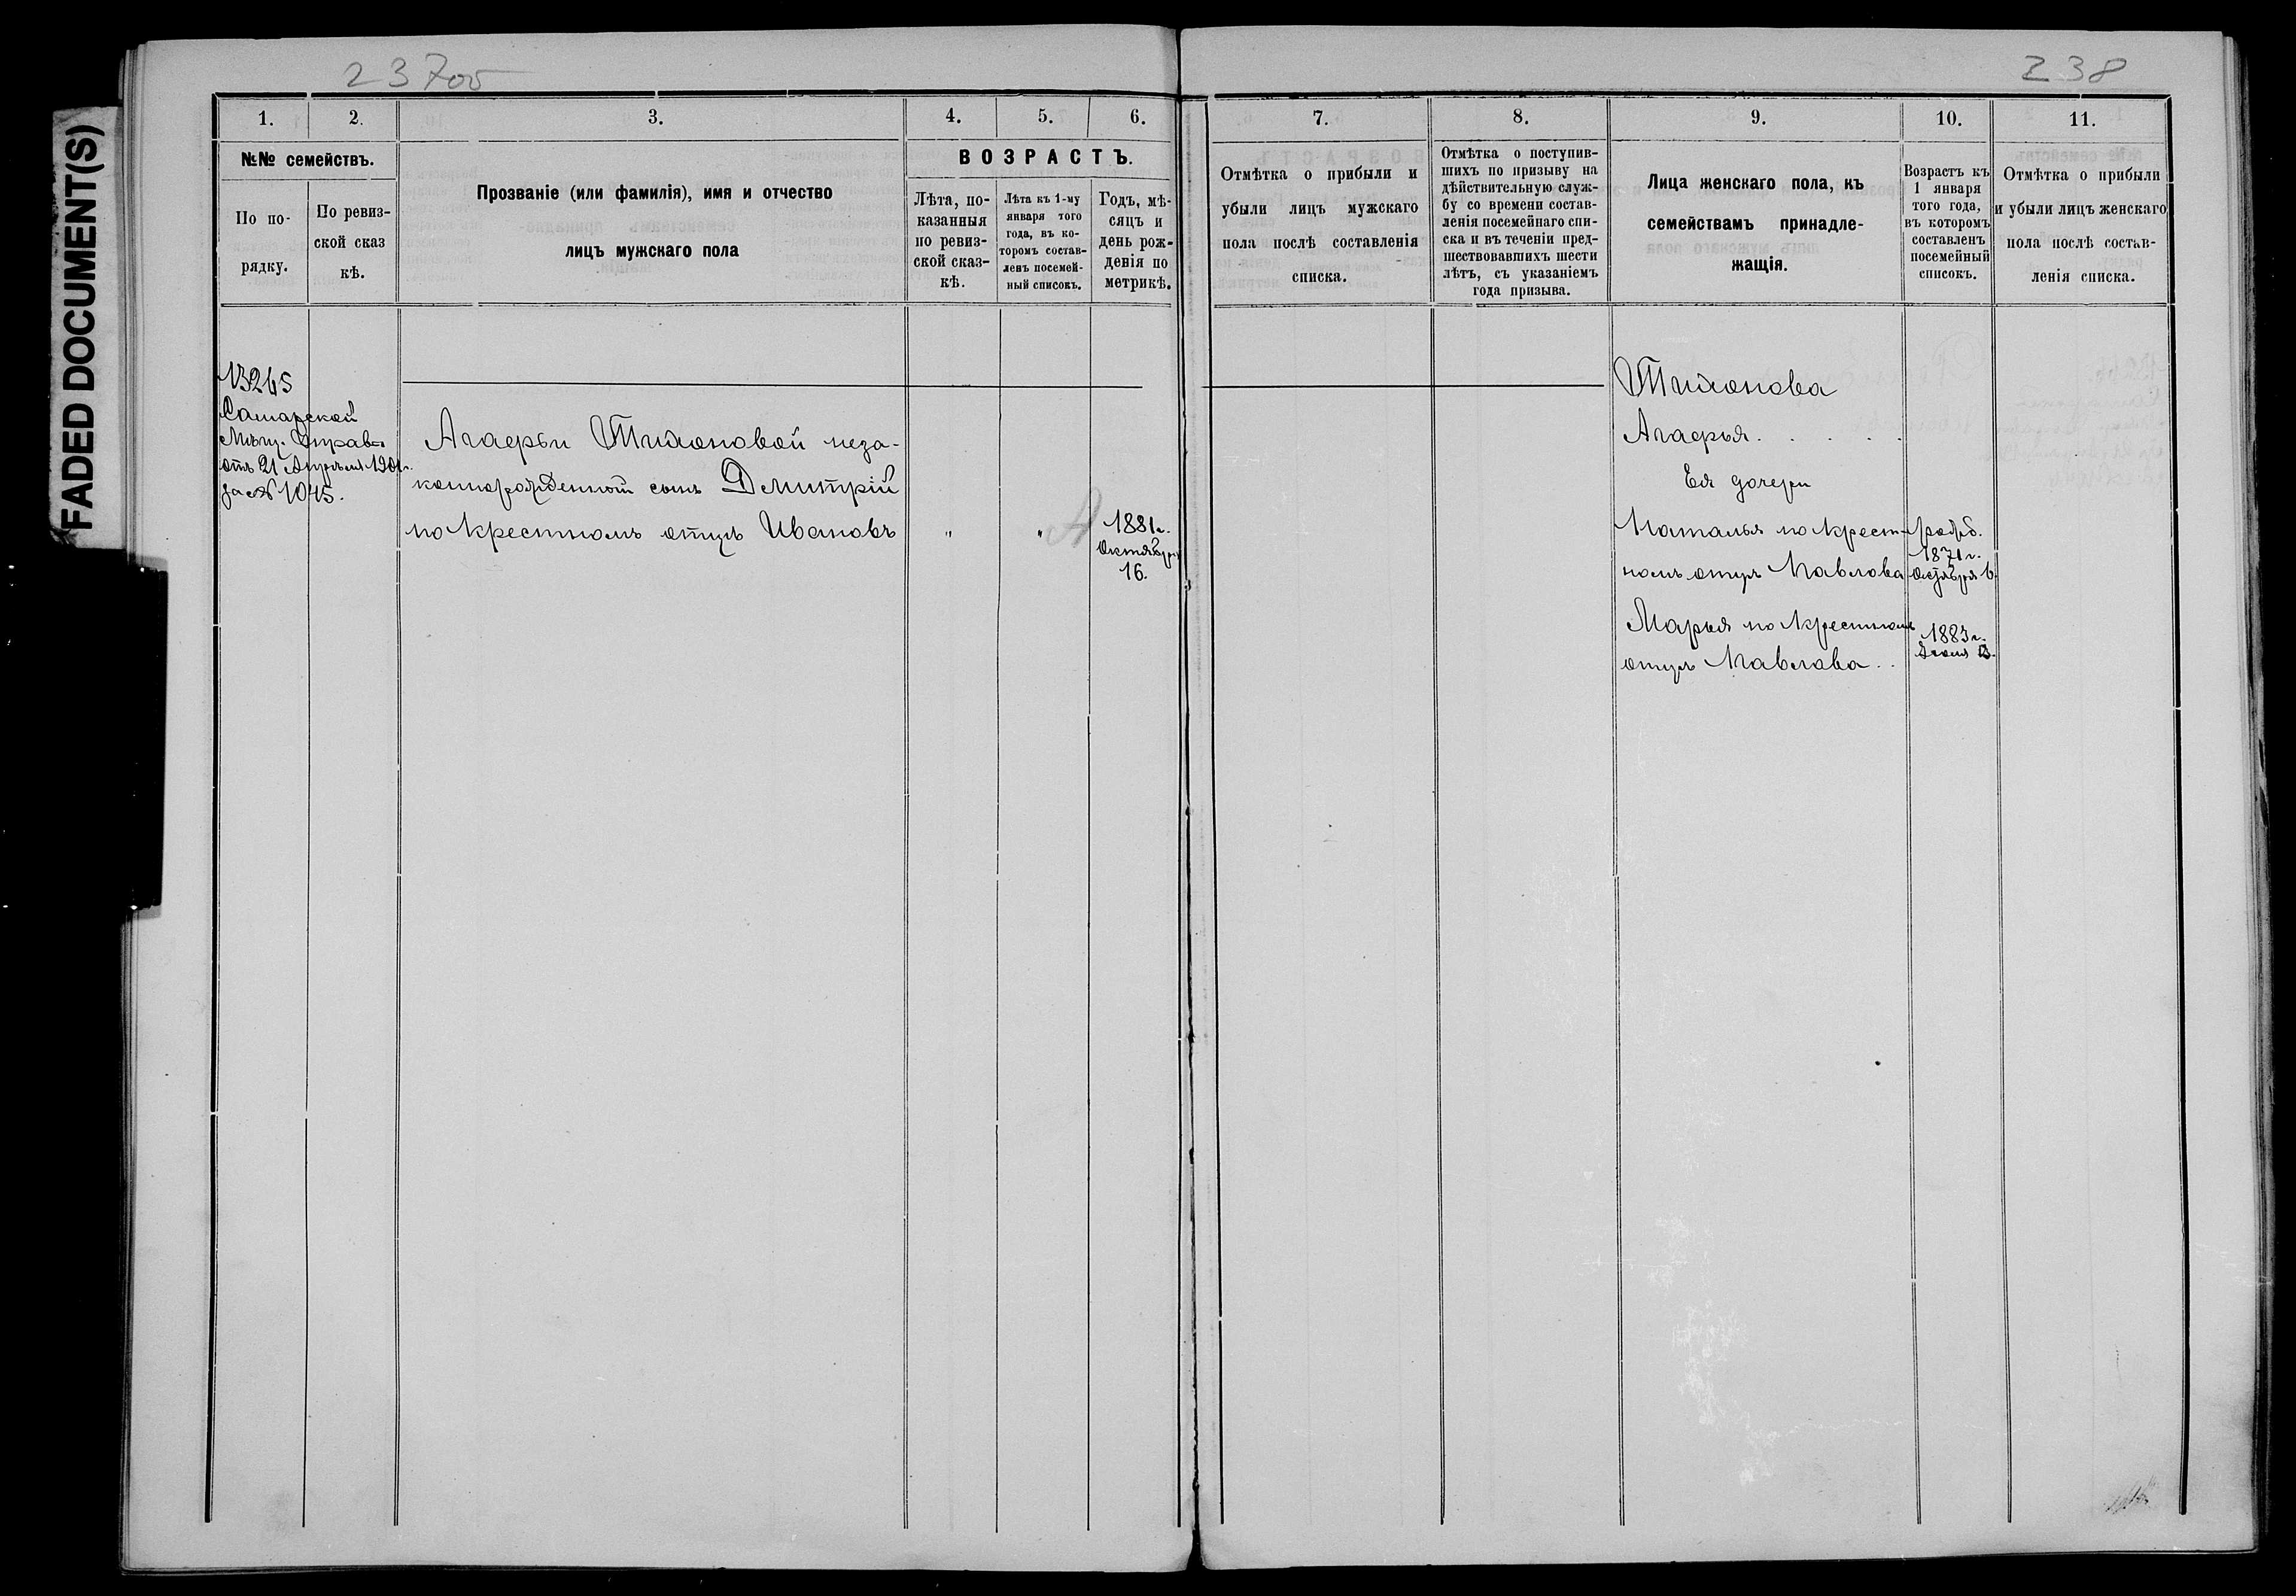 FADED DOCUMENT(S)
237об
238
1.
2.
3.
4.
5.
6.
№№ семействъ.
По по-
рядку.
По ревиз-
ской сказ
кѣ.
Прозваніе (или фамилія), имя и отчество
лицъ мужскаго пола
ВОЗРАСТЪ.
Лѣта, по-
казанныя
по ревиз-
ской сказ-
кѣ.
Лѣта къ 1-му
января того
года, въ ко-
торомъ состав-
ленъ посемей-
ный списокъ.
Годъ, мѣ-
сяцъ и
день рож-
денія по
метрикѣ.
7.
8.
9.
10.
11.
Отмѣтка о прибыли и
убыли лицъ мужскаго
пола послѣ составленія
списка.
Отмѣтка о поступив-
шихъ по призыву на
дѣйствительную служ-
бу со времени состав-
ленія посемейнаго спи-
ска и въ теченіи пред-
шествовавшихъ шести
лѣтъ, съ указаніемъ
года призыва.
Лица женскаго пола, къ
семействамъ принадле-
жащія.
Возрастъ къ
1 января
того года,
въ которомъ
составленъ
посемейный
списокъ.
Отмѣтка о прибыли
и убыли лицъ женскаго
пола послѣ состав-
ленія списка.
13245
Самарской
Мѣщ. Управы
отъ 21 Апрѣля 1901г.
за № 1045.
Агафьи Тихоновой неза-
коннорожденный сынъ Дмитрій
по крестномъ отцѣ Ивановъ
" "
1881г.
Октября
16.
Тихонова
Агафья . . . . .
Ея дочери
Наталья по крест-
номъ отцѣ Павлова
родб.
1871г.
Октября 6.
Марья по крестномъ
отцѣ Павлова . .
1883г.
Іюля 13.